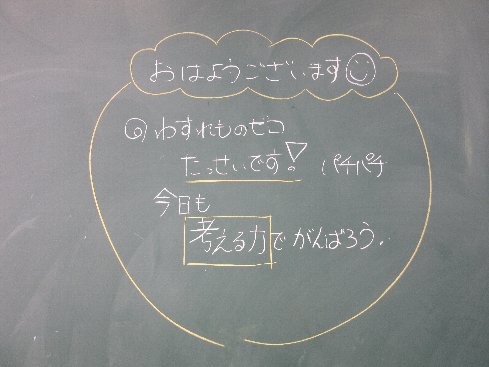 おはようございます
◎わすれものゼロ
たっせいです! パチパチ
今日も
考える力でがんばろう.